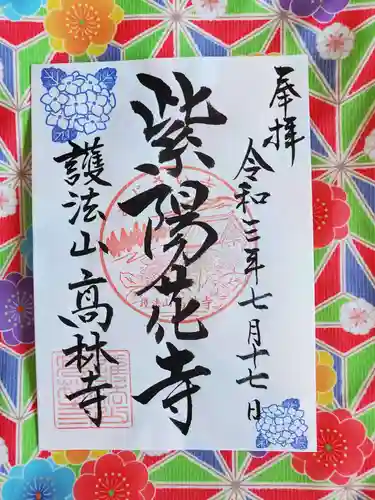 奉拝
令和三年七月十七日
紫陽花寺
護法山
高林寺